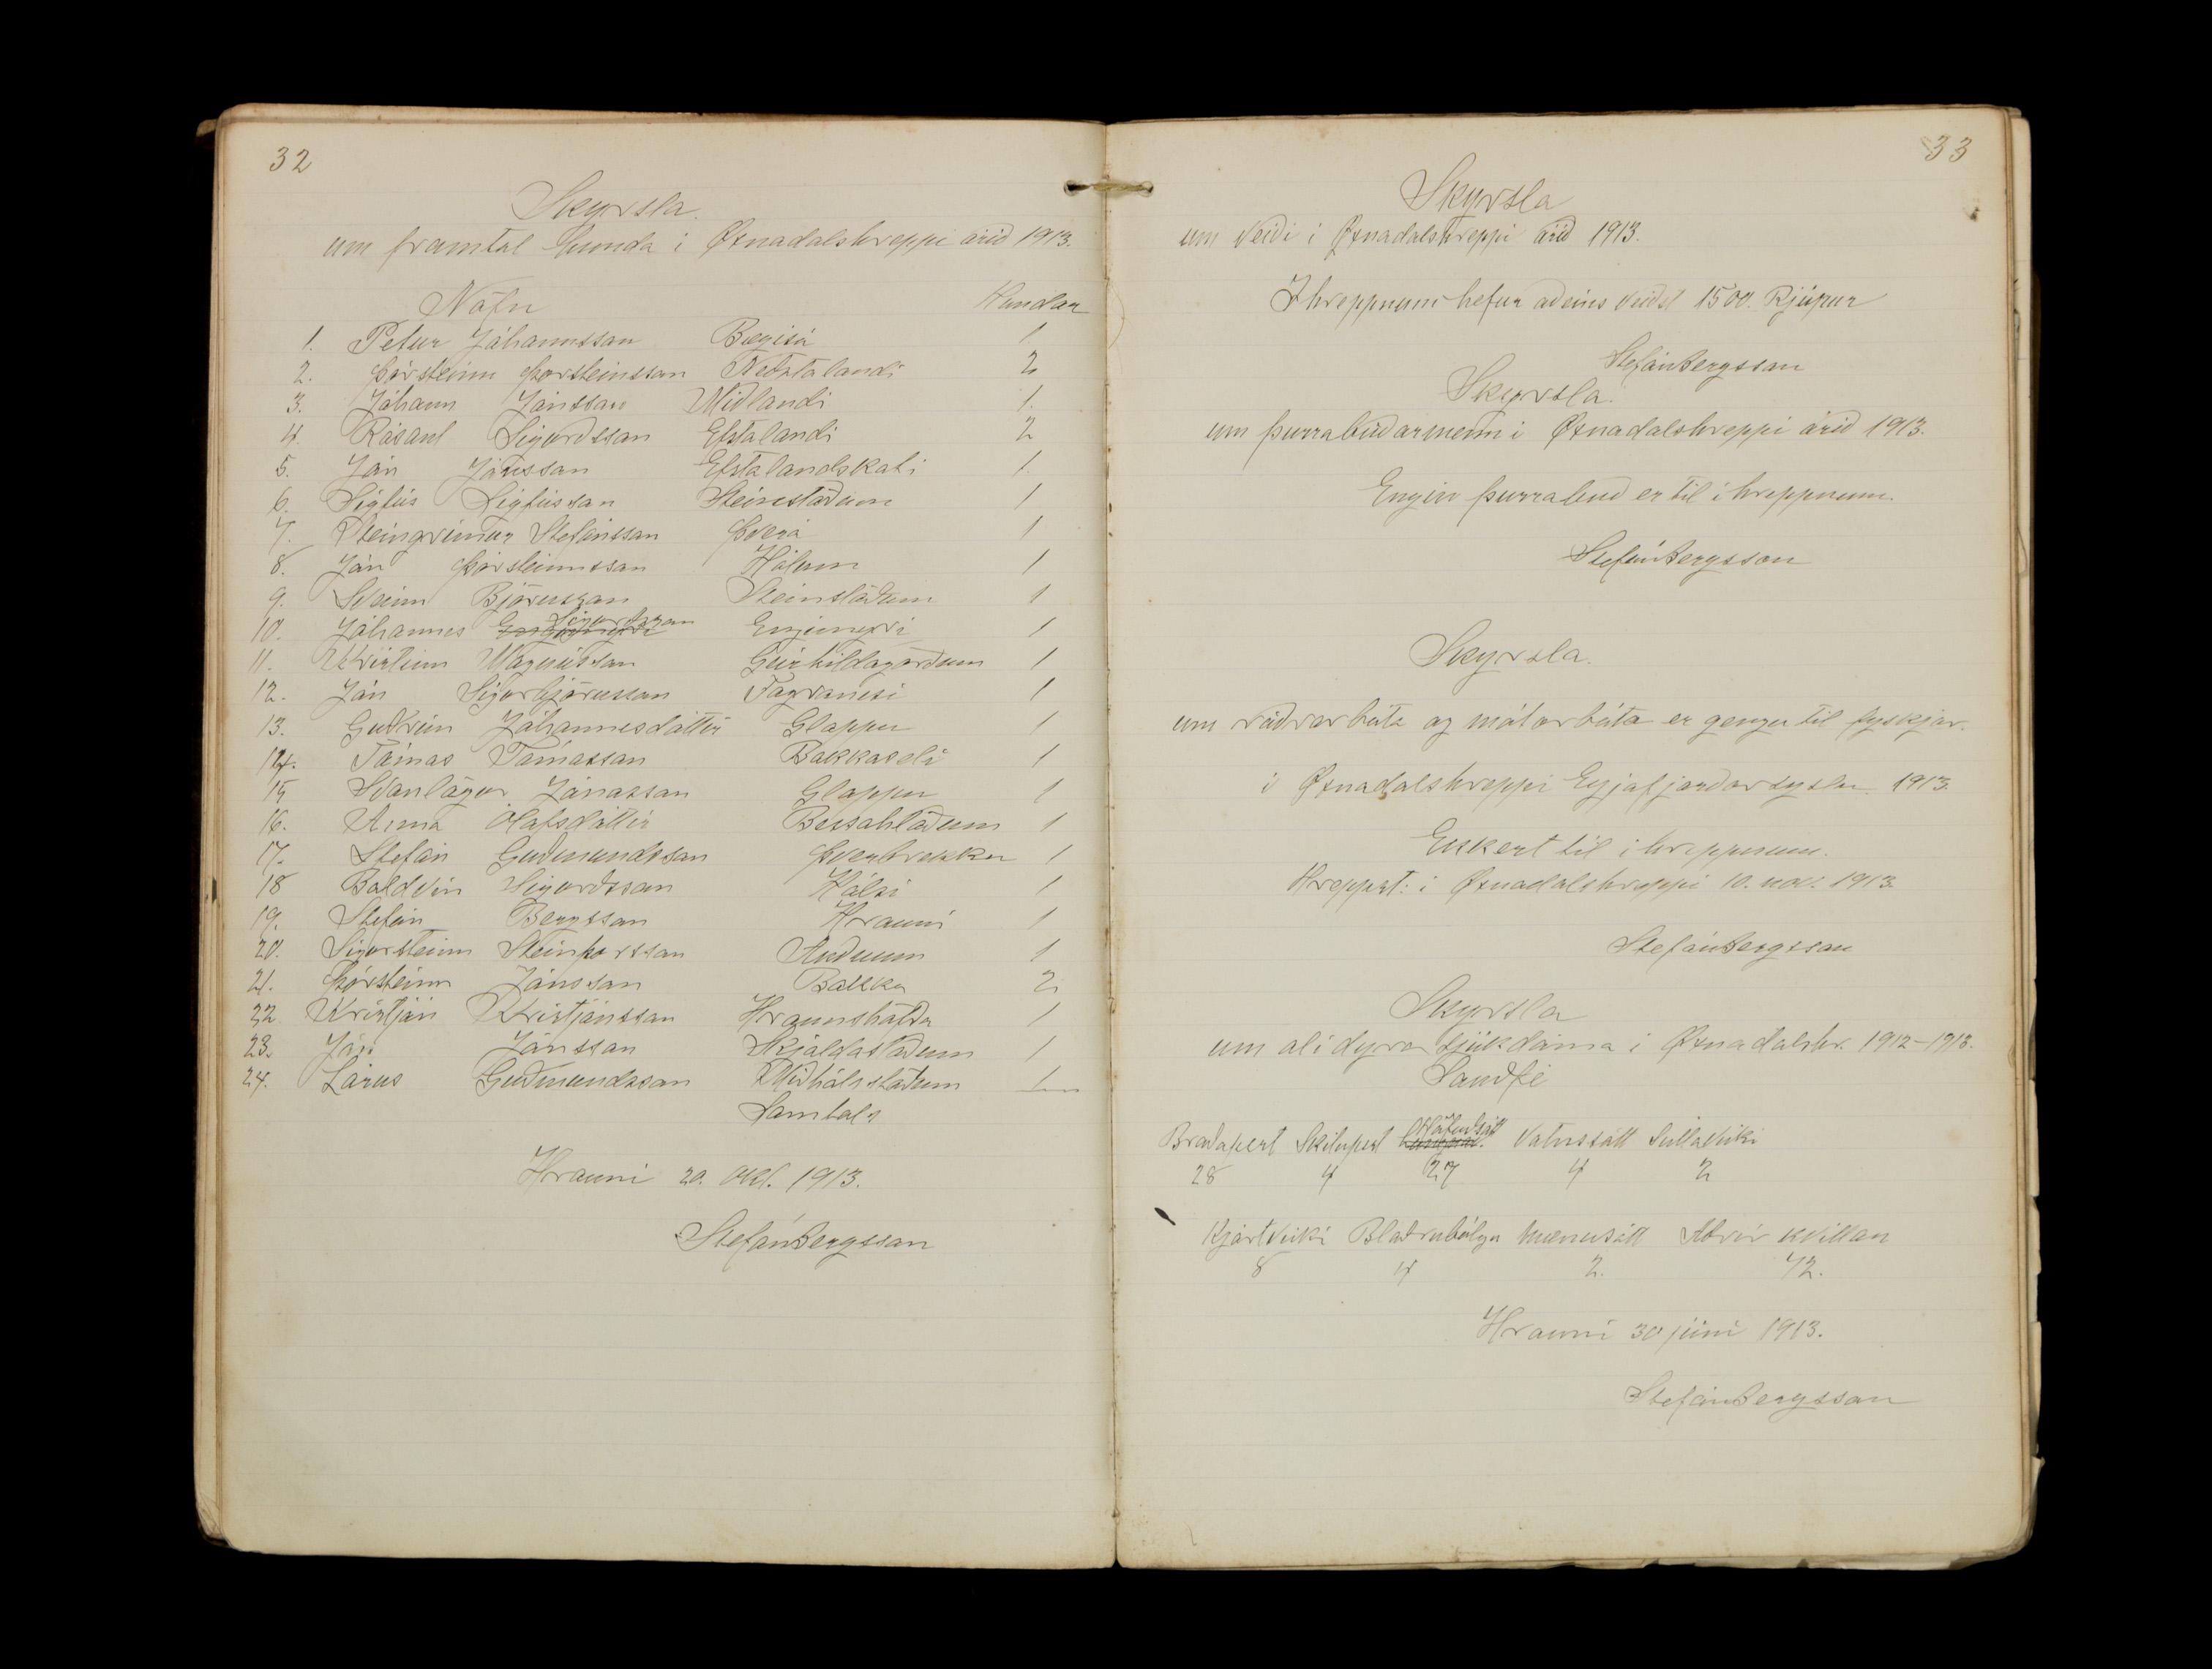 32
Skyrsla.
um framtal hunda i Öxnadalshreppi árið 1913.
Nöfn Hundar
1. Petur Jóhannsson Bægisá 1
2. Þórsteinn Þorsteinsson Neðstalandi 2
3. Jóhann Jónsson Miðlandi 1.
4. Rósant Sigurðsson Efstalandi 2
5. Jón Jónsson Efstalandskoti 1
6. Sigfús Sigfússon Steinstöðum 1
7. Steingrímur Stefánsson Þverá 1
8. Jón Þorsteinnsson Hólum 1
9. Sveinn Björnsson Steinstöðum 1
10. Jóhannes Sigurðsson Engimyri 1
11. Kristinn Magnússon Geirhildagörðum 1
12. Jón Sigurbjörnsson Fagranesi 1
13. Guðrún Jóhannesdóttir Gloppu 1
14. Tómas Tómasson Bakkaseli 1
15 Svanlögur Jónasson Gloppu 1
16. Anna Ólafsdóttir Bessahlöðum 1
17. Stefán Guðmundsson Þverbrekku 1
18 Baldvin Sigurðsson Hálsi 1
19. Stefán Bergsson Hrauni 1
20. Sigursteinn Steinþorsson Auðnum 1
21. Þórsteinn Jónsson Bakka 2
22 Kristján Kristjánsson Hraunshöfða 1
23. Jón Jónsson Skjaldastöðum 1
24. Lárus Guðmundsson Miðhálsstöðum 1
Samtals
Hrauni 20. Okt. 1913.
Stefán Bergsson
33
Skyrsla
um veiði i Öxnadalshreppi árið 1913.
I hreppnum hefur aðeins veiðst 1500. Rjúpur
Stefán Bergsson
Skyrsla.
um þurrabúðarmenn i Öxnadalshreppi árið 1913.
Engin þurrabúð er til i hreppnum.
Stefán Bergsson
Skyrsla.
um róðrarbáta og mótorbáta er gengu til fyskjar.
i Öxnadalshreppi Eyjafjarðarsyslu. 1913.
Ekkert til i hreppnum.
Hreppst: i Öxnadalshreppi 10. nov. 1913.
Stefán Bergsson
Skyrsla
um alidyra sjúkdóma i Öxnadalshr. 1912-1913.
Sauðfé
Bráðapest Skitupest Höfuðsótt Vatnssótt Sullaveiki
28 4 27 4 2
Hjartveiki Blöðrubólgu Mænusótt Aðrir kvillar
8 4 2. 72.
Hrauni 30 júni 1913.
Stefán Bergsson